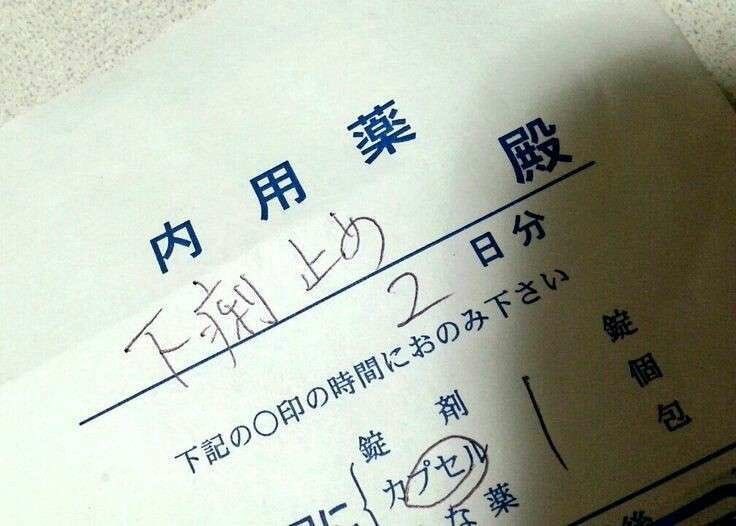 内用薬
下痢止め 殿
2日分
下記の〇印の時間におのみ下さい
錠剤 錠
カプセル 1 個
な薬 包